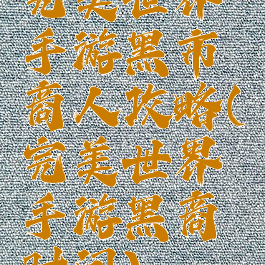 完美世界
手游黑市
商人攻略(
完美世界
手游黑商
时间)